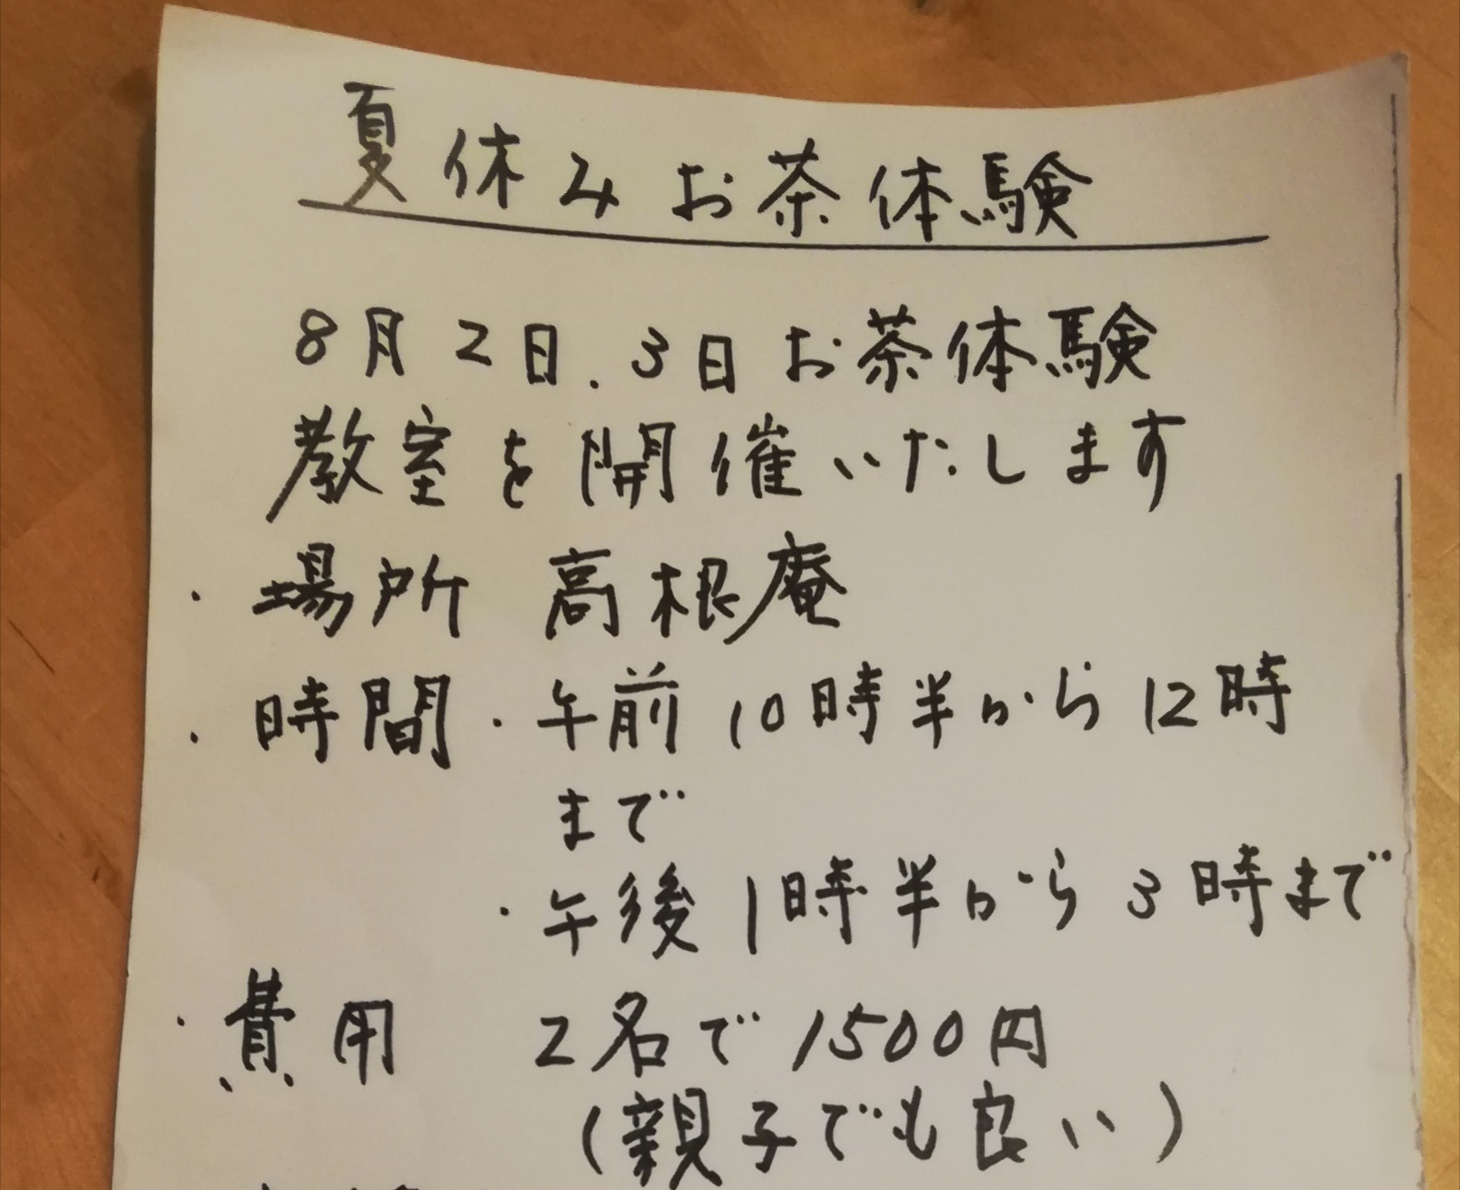 夏休みお茶体験
8月2日.3日お茶体験
教室を開催いたします
・場所 高根庵
・時間・午前10時半から12時
まで
・午後1時半から3時まで
・費用 2名で1500円
(親子でも良い)